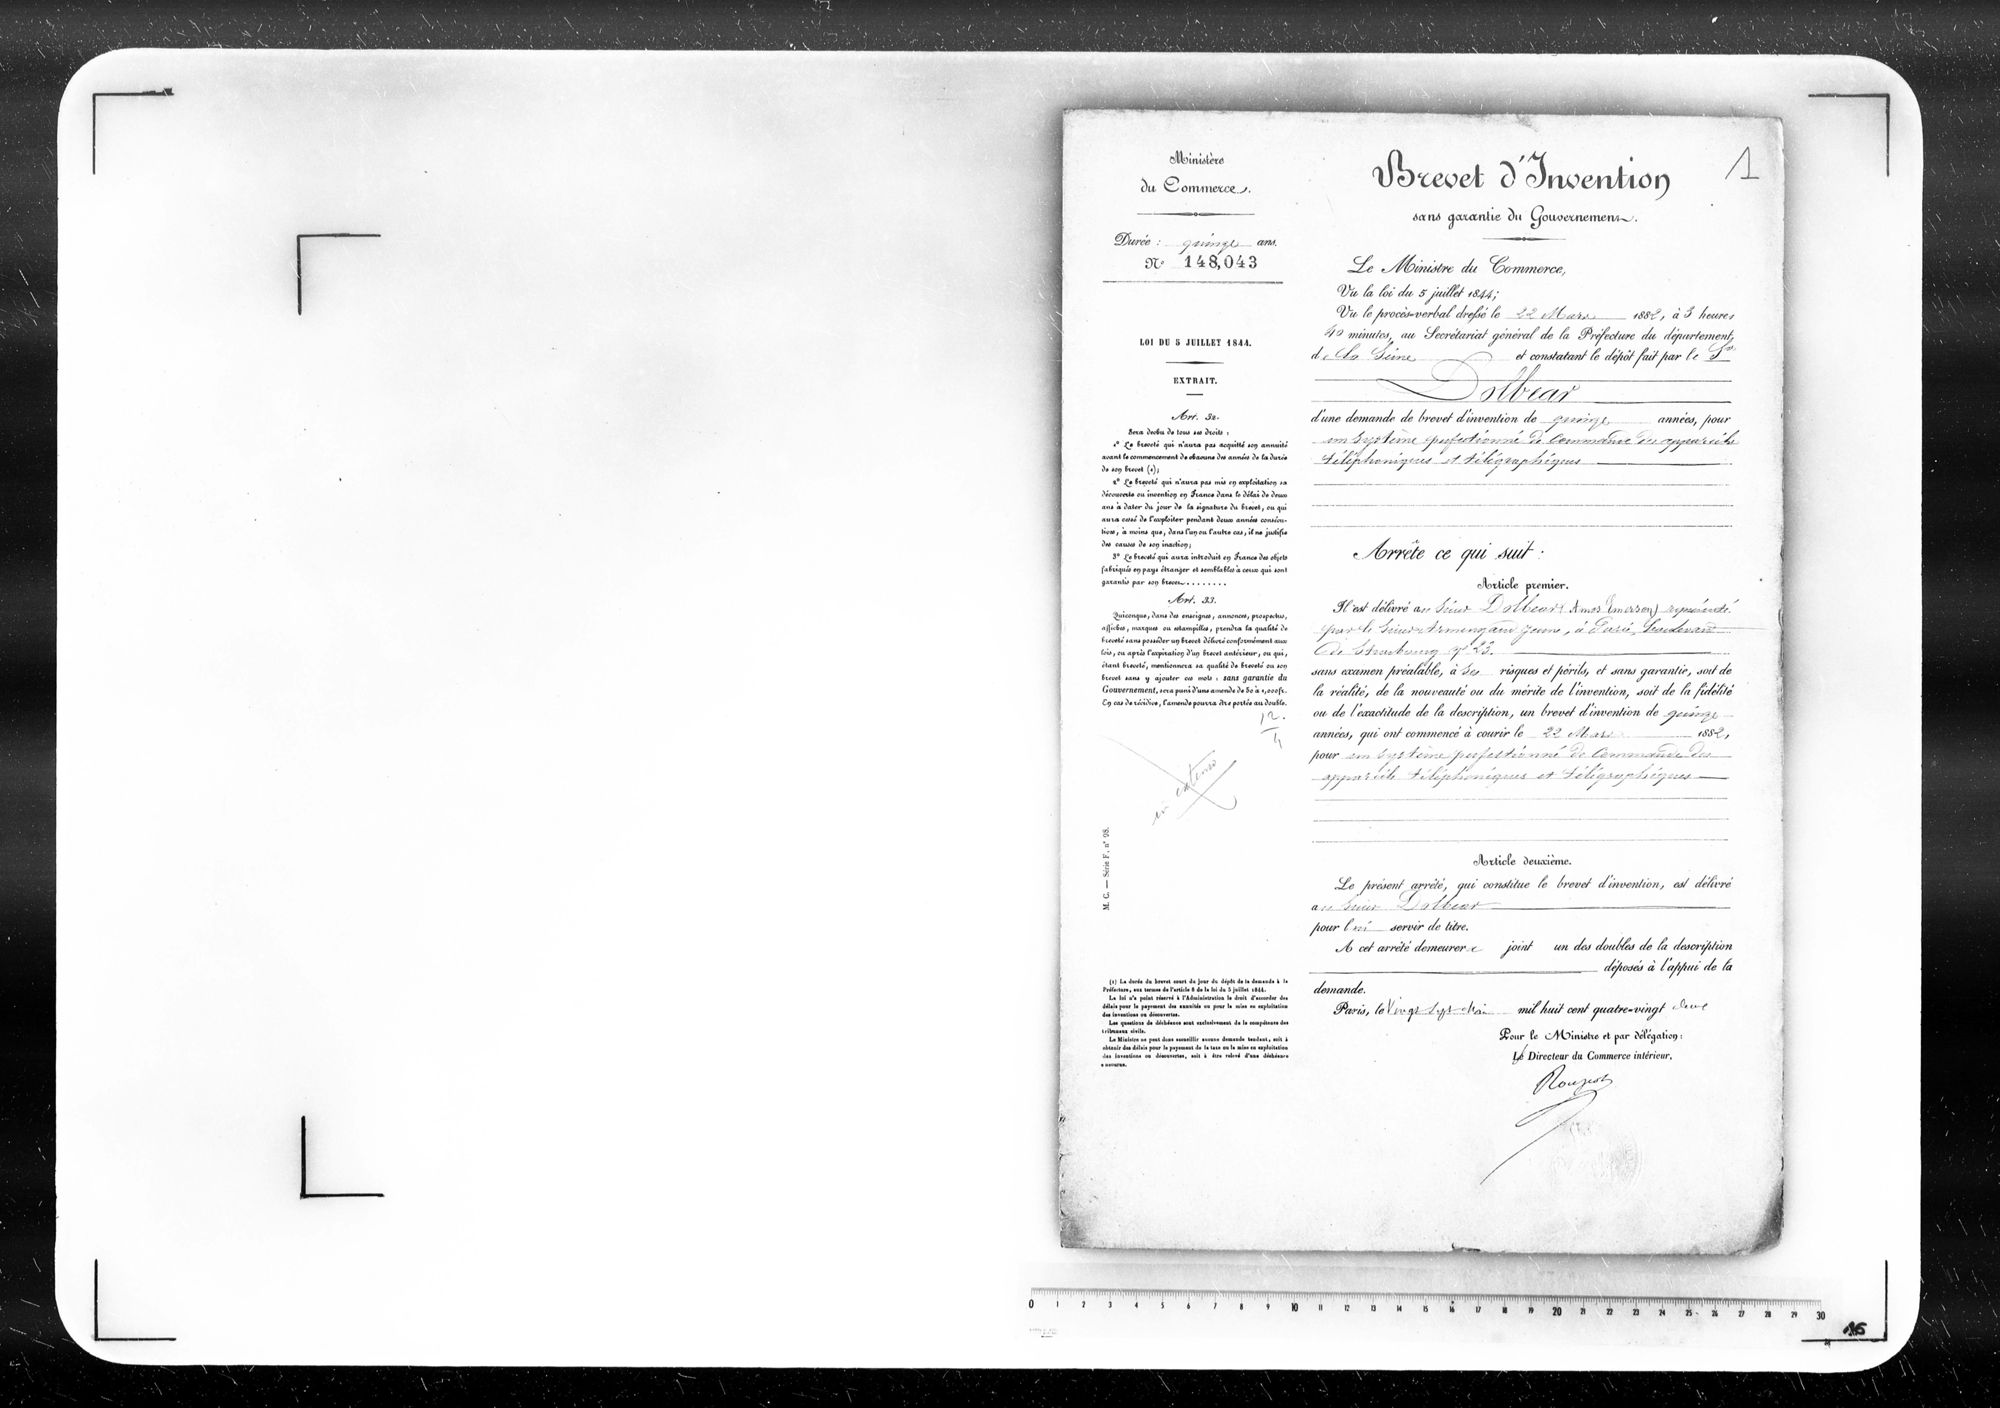 Ministère
du Commerce.
Durée : quinze ans.
N° 148,043
LOI DU 5 JUILLET 1844.
EXTRAIT.
Art. 32.
Sera déchu de tous ses droits :
1° Le breveté qui n'aura pas acquitté son annuité
avant le commencement de chacune des années de la durée
de son brevet (1);
2° Le breveté qui n'aura pas mis en exploitation sa
découverte ou invention en France dans le délai de deux
ans à dater du jour de la signature du brevet, ou qui
aura cessé de l'exploiter pendant deux années consécu-
tives, à moins que, dans l'un ou l'autre cas, il ne justifie
des causes de son inaction;
3° Le breveté qui aura introduit en France des objets
fabriqués en pays étranger et semblables à ceux qui sont
garantis par son brevet........
Art. 33.
Quiconque, dans des enseignes, annonces, prospectus,
affiches, marques ou estampilles, prendra la qualité de
breveté sans posséder un brevet délivré conformément aux
lois, ou après l'expiration d'un brevet antérieur, ou qui,
étant breveté, mentionnera sa qualité de breveté ou son
brevet sans y ajouter ces mots : sans garantie du
Gouvernement, sera puni d'une amende de 50 à 1,000 fr.
En cas de récidive, l'amende pourra être portée au double.
12
4
in extenso
M. C. — Série F, n° 98.
(1) La durée du brevet court du jour du dépôt de la demande à la
Préfecture, aux termes de l'article 8 de la loi du 5 juillet 1844.
La loi n'a point réservé à l'Administration le droit d'accorder des
délais pour le payement des annuités ou pour la mise en exploitation
des inventions ou découvertes.
Les questions de déchéance sont exclusivement de la compétence des
tribunaux civils.
Le Ministre ne peut donc accueillir aucune demande tendant, soit à
obtenir des délais pour le payement de la taxe ou la mise en exploitation
des inventions ou découvertes, soit à être relevé d'une déchéance
encourue.
1
Brevet d'Invention
sans garantie du Gouvernement.
Le Ministre du Commerce,
Vu la loi du 5 juillet 1844;
Vu le procès-verbal dressé le 22 Mars 1882, à 3 heures
40 minutes, au Secrétariat général de la Préfecture du département
de la Seine et constatant le dépôt fait par le Sr
Dolbear
d'une demande de brevet d'invention de quinze années, pour
un système perfectionné de commande des appareils
téléphoniques et télégraphiques
Arrête ce qui suit :
Article premier.
Il est délivré au Sieur Dolbear (Amos Emerson) représenté
par le Sieur Armengaud jeune, à Paris, boulevard
de Strasbourg n° 23.
sans examen préalable, à ses risques et périls, et sans garantie, soit de
la réalité, de la nouveauté ou du mérite de l'invention, soit de la fidélité
ou de l'exactitude de la description, un brevet d'invention de quinze
années, qui ont commencé à courir le 22 Mars 1882,
pour un système perfectionné de commande des
appareils téléphoniques et télégraphiques
Article deuxième.
Le présent arrêté, qui constitue le brevet d'invention, est délivré
au Sieur Dolbear
pour lui servir de titre.
A cet arrêté demeurera joint un des doubles de la description
déposés à l'appui de la
demande.
Paris, le Vingt sept Mai mil huit cent quatre-vingt deux
Pour le Ministre et par délégation :
Le Directeur du Commerce intérieur.
0 1 2 3 4 5 6 7 8 9 10 11 12 13 14 15 16 17 18 19 20 21 22 23 24 25 26 27 28 29 30
16